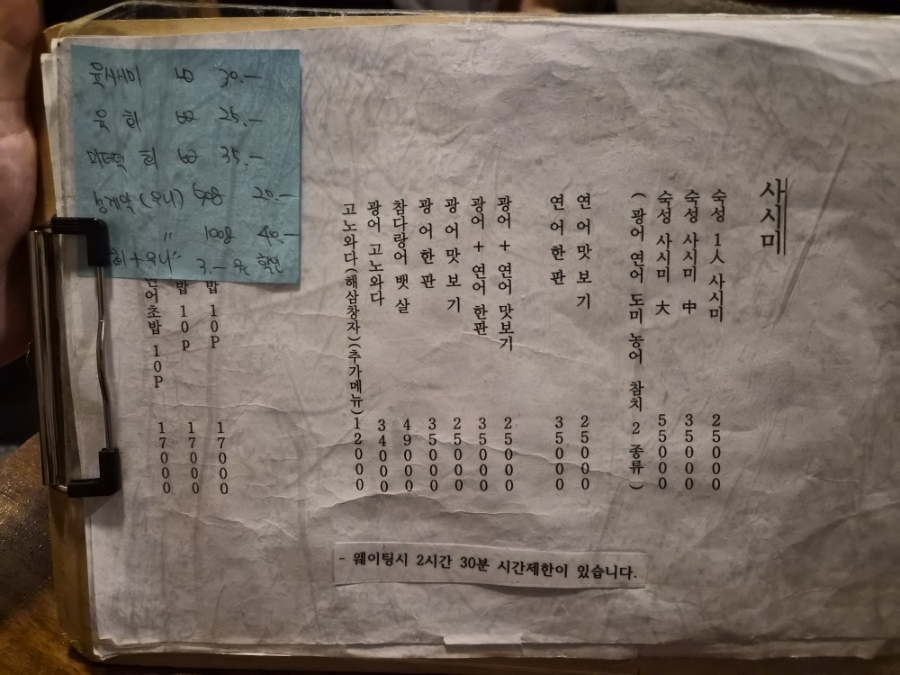 사시미
숙성 1人 사시미 25000
숙성 사시미 中 35000
숙성 사시미 大 55000
( 광어 연어 도미 농어 참치 2 종류 )
연어 맛보기 25000
연어 한판 35000
광어 + 연어 맛보기 25000
광어 + 연어 한판 35000
광어 맛보기 25000
광어 한판 35000
참다랑어 뱃살 49000
광어 고노와다 34000
고노와다(해삼창자)(추가메뉴) 12000
밥 10P 17000
밥 10P 17000
연어초밥 10P 17000
육사시미 30.-
육회 25.-
회 35.-
(우니) 50g 20.-
" 100g 40.-
회+우니" 3.-
- 웨이팅시 2시간 30분 시간제한이 있습니다.